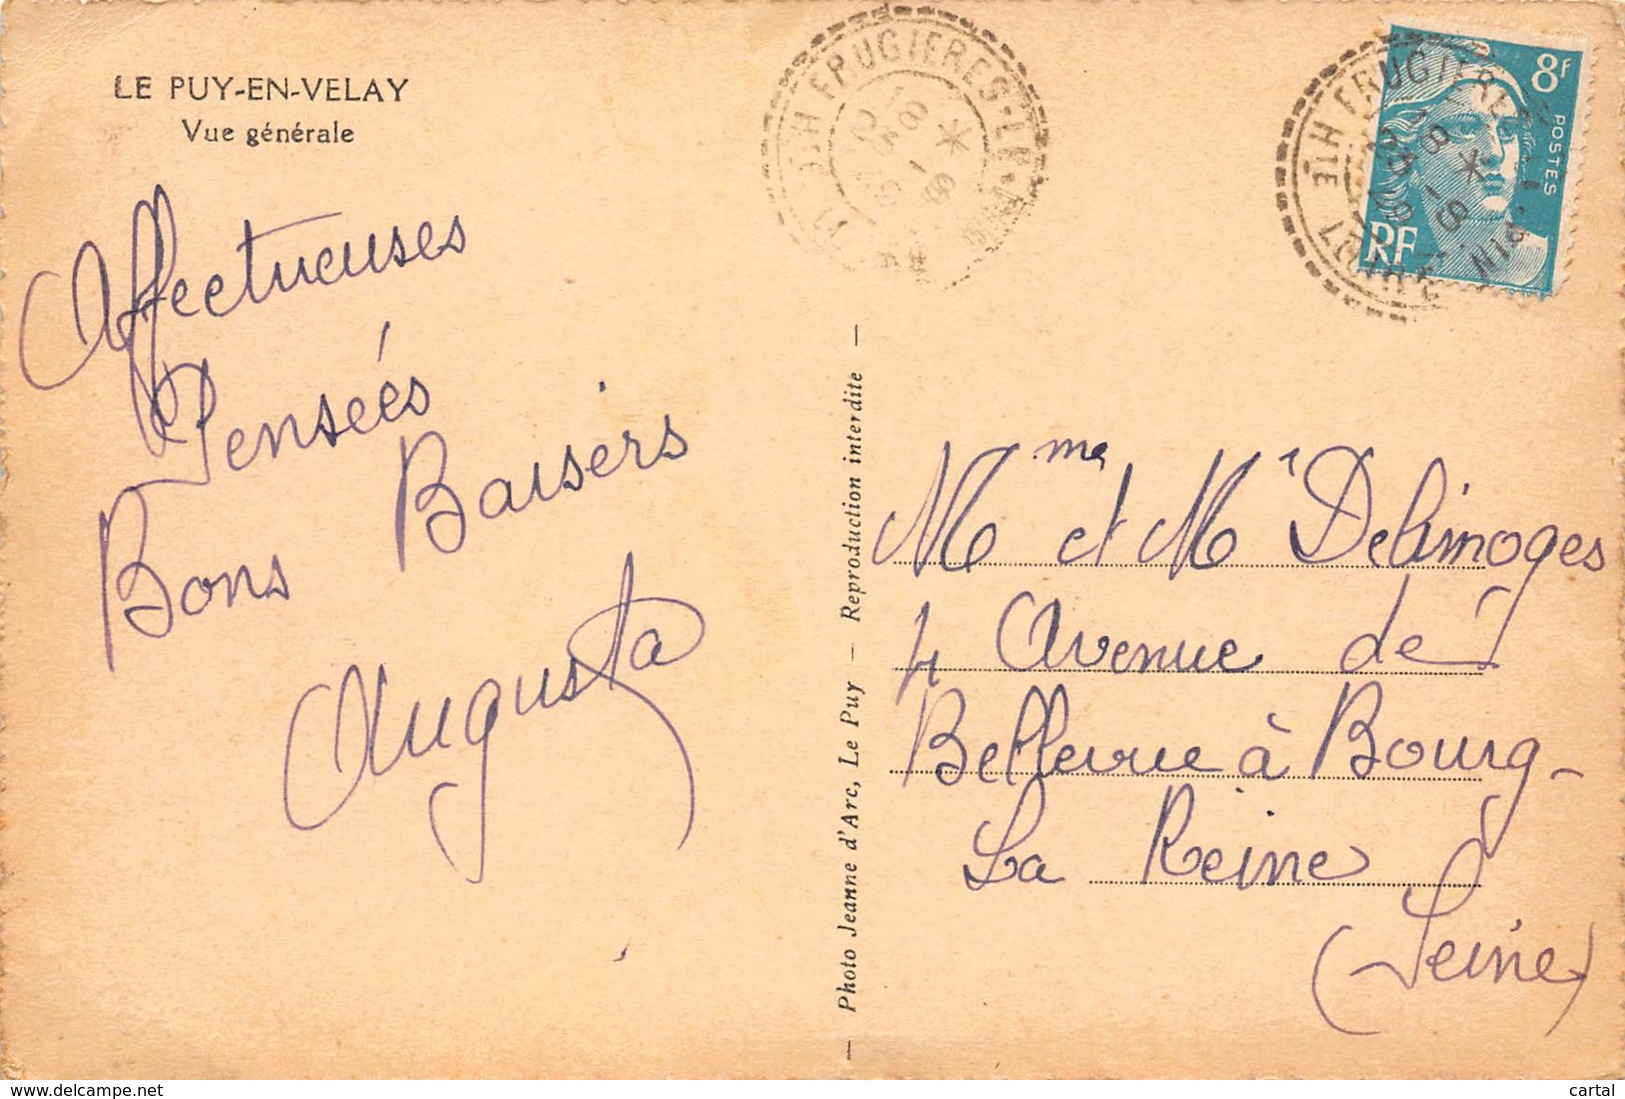 LE PUY-EN-VELAY
Vue générale
Affectueuses
Penseés
Bons Baisers
Augusta
Photo Jeanne d'Arc, Le Puy — Reproduction interdite
FRUGIERES-LE-PIN
18
8F
POSTES
RF
FRUGIERES
PIN
Mme et Mr Delimoges
4 Avenue de
Bellevue à Bourg-
La Reine
(Seine)
www.delcampe.net
cartal